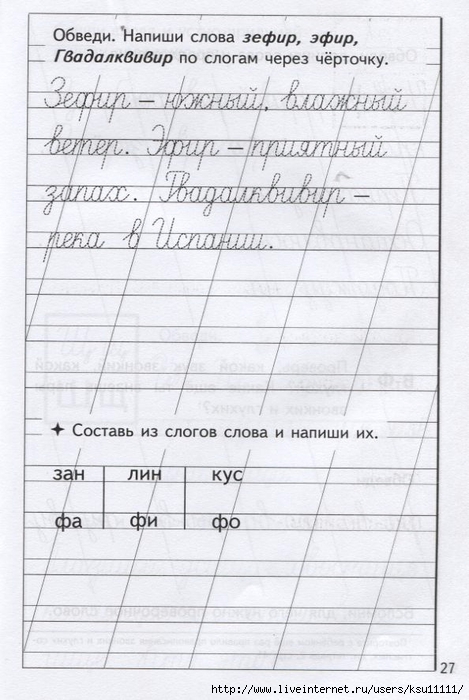 Обведи. Напиши слова зефир, эфир,
Гвадалквивир по слогам через чёрточку.
Зефир – южный, влажный
ветер. Эфир – приятный
запах. Гвадалквивир –
река в Испании.
✦ Составь из слогов слова и напиши их.
зан лин кус
фа фи фо
27
http://www.liveinternet.ru/users/ksu11111/